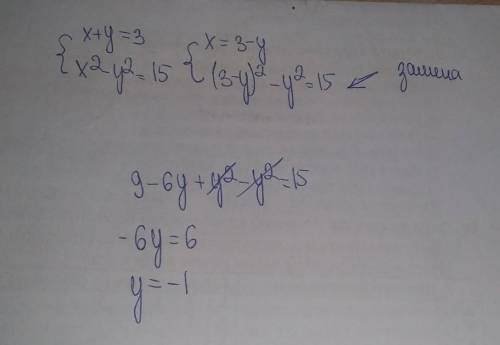 { x+y=3 { x=3-y
{ x²-y²=15 { (3-y)²-y²=15 ↙ замена
9-6y+y²-y²=15
-6y=6
y=-1